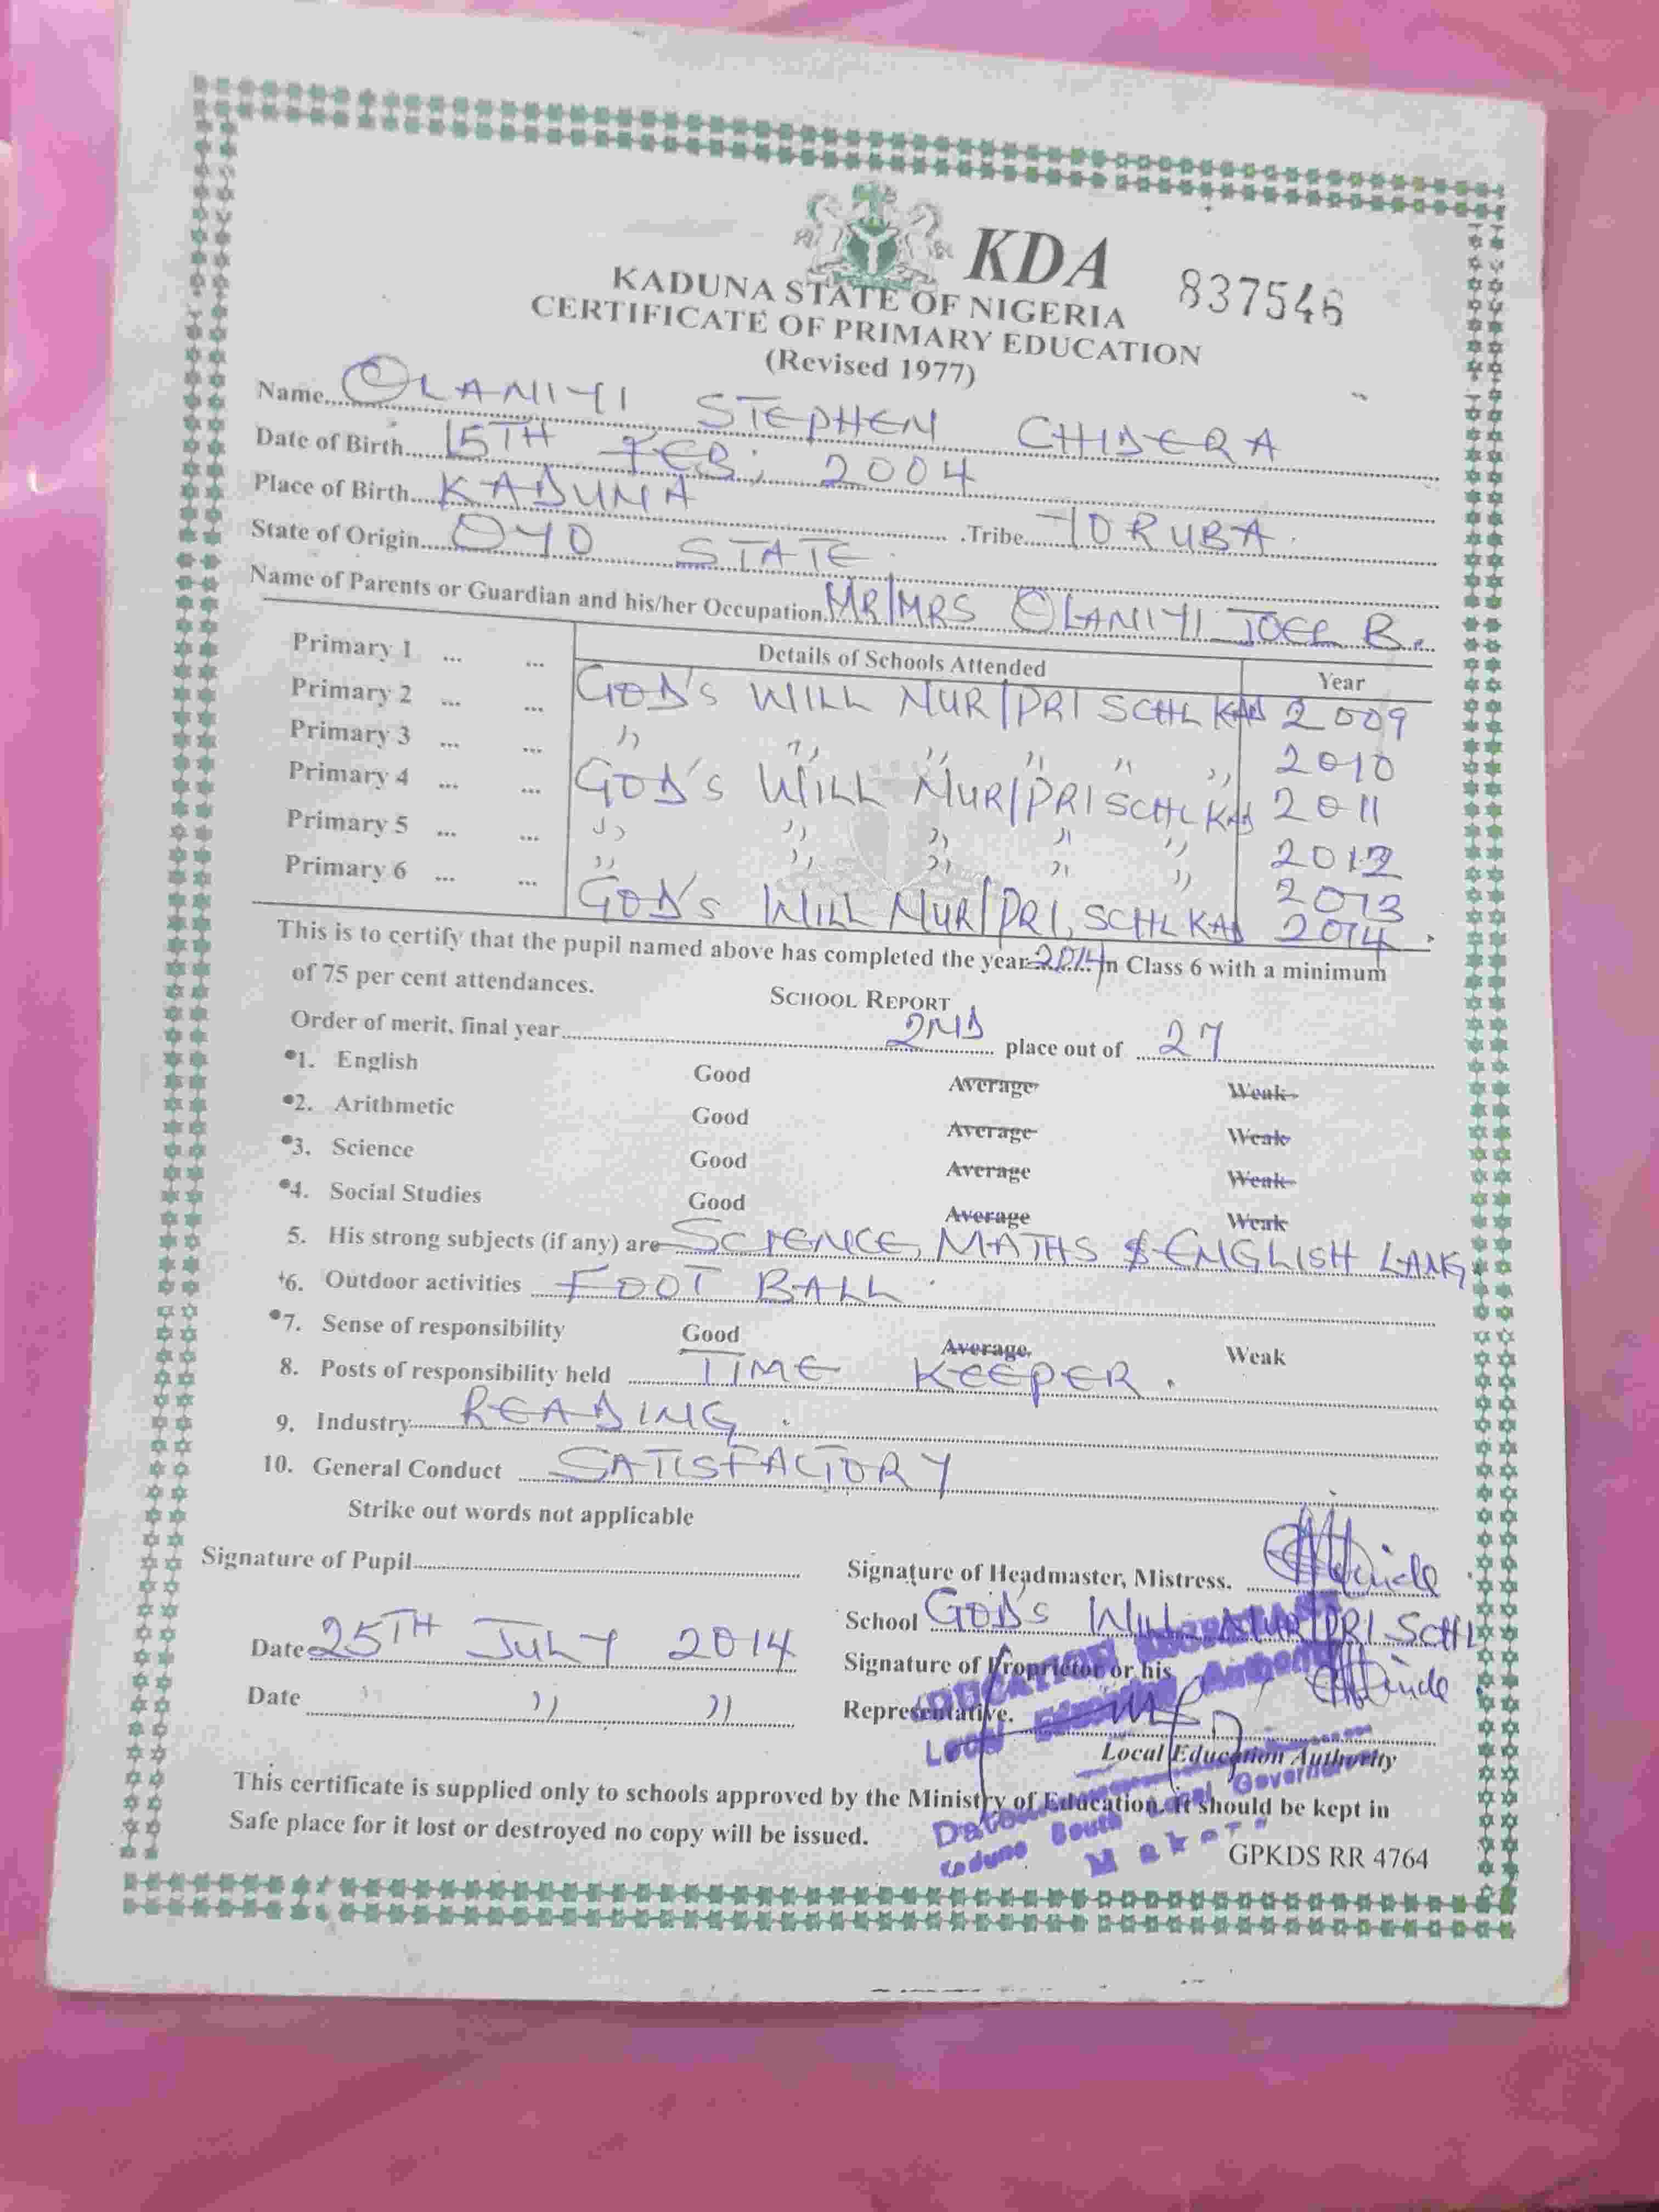 KDA 837546
KADUNA STATE OF NIGERIA
CERTIFICATE OF PRIMARY EDUCATION
(Revised 1977)
Name OLANIYI STEPHEN CHIDERA
Date of Birth 15TH FEB, 2004
Place of Birth KADUNA
State of Origin OYO STATE Tribe YORUBA
Name of Parents or Guardian and his/her Occupation MR/MRS OLANIYI JOEL B.
Details of Schools Attended Year
Primary 1 ... ... GOD'S WILL NUR/PRI SCHL KAD 2009
Primary 2 ... ... ,, ,, ,, ,, ,, ,, 2010
Primary 3 ... ... GOD'S WILL NUR/PRI SCHL KAD 2011
Primary 4 ... ... ,, ,, ,, ,, ,, 2012
Primary 5 ... ... ,, ,, ,, ,, ,, 2013
Primary 6 ... ... GOD'S WILL NUR/PRI, SCHL KAD 2014
This is to certify that the pupil named above has completed the year 2014 in Class 6 with a minimum
of 75 per cent attendances.
SCHOOL REPORT
Order of merit, final year 2ND place out of 27
*1. English Good Average Weak
*2. Arithmetic Good Average Weak
*3. Science Good Average Weak
*4. Social Studies Good Average Weak
5. His strong subjects (if any) are SCIENCE, MATHS & ENGLISH LANG
+6. Outdoor activities FOOT BALL
*7. Sense of responsibility Good Average Weak
8. Posts of responsibility held TIME KEEPER.
9. Industry READING.
10. General Conduct SATISFACTORY
Strike out words not applicable
Signature of Pupil Signature of Headmaster, Mistress.
School GOD'S WILL NUR/PRI SCHL
Date 25TH JULY 2014 Signature of Proprietor or his
Date ,, ,, Representative.
EDUCATION
Local Education Authority
Local Education Authority
This certificate is supplied only to schools approved by the Ministry of Education. It should be kept in
Safe place for it lost or destroyed no copy will be issued.
Date
Kaduna South Local Government
GPKDS RR 4764